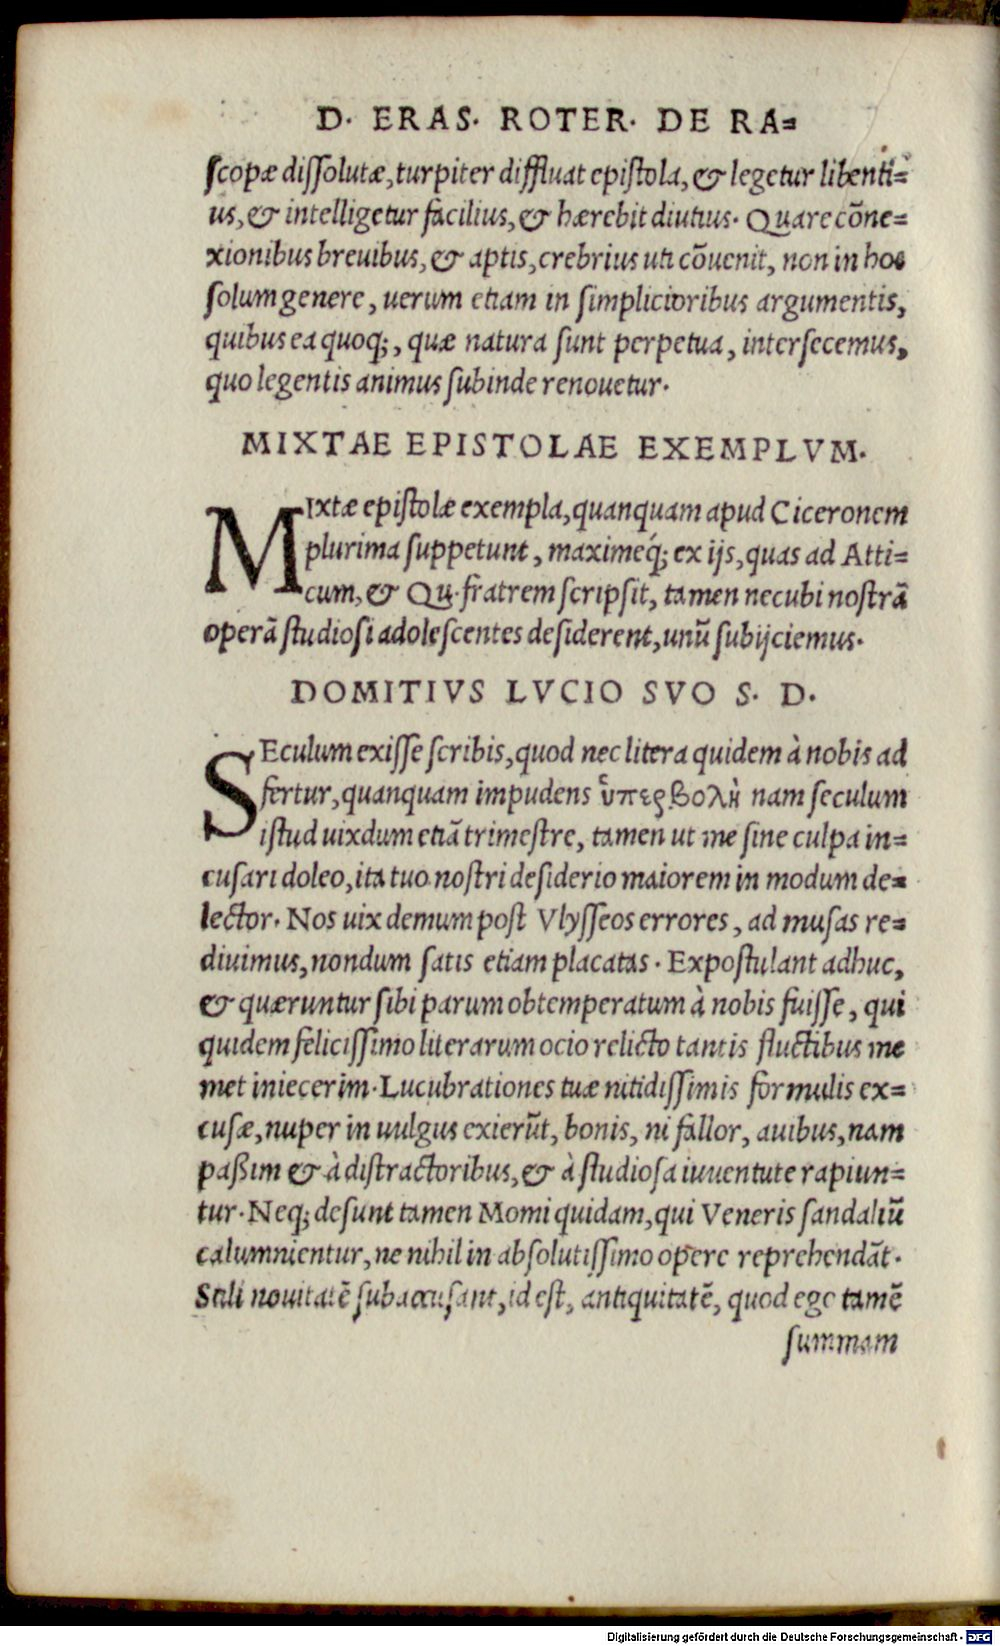 D. ERAS. ROTER. DE RA=
scopæ dissolutæ, turpiter diffluat epistola, & legetur libenti=
us, & intelligetur facilius, & hærebit diutius. Quare cõne=
xionibus breuibus, & aptis, crebrius uti cõuenit, non in hoc
solum genere, uerum etiam in simplicioribus argumentis,
quibus ea quoq;, quæ natura sunt perpetua, intersecemus,
quo legentis animus subinde renouetur.
MIXTAE EPISTOLAE EXEMPLVM.
MIxtæ epistolæ exempla, quanquam apud Ciceronem
plurima suppetunt, maximeq́; ex ijs, quas ad Atti=
cum, & Qu. fratrem scripsit, tamen necubi nostrã
operã studiosi adolescentes desiderent, unũ subijciemus.
DOMITIVS LVCIO SVO S. D.
SEculum exisse scribis, quod nec litera quidem à nobis ad
fertur, quanquam impudens ὑπερβολὴ nam seculum
istud uixdum etiã trimestre, tamen ut me sine culpa in=
cusari doleo, ita tuo nostri desiderio maiorem in modum de=
lector. Nos uix demum post Vlysseos errores, ad musas re=
diuimus, nondum satis etiam placatas. Expostulant adhuc,
& quæruntur sibi parum obtemperatum à nobis fuisse, qui
quidem felicissimo literarum ocio relicto tantis fluctibus me
met iniecerim. Lucubrationes tuæ nitidissimis formulis ex=
cusæ, nuper in uulgus exierũt, bonis, ni fallor, auibus, nam
paßim & à distractoribus, & à studiosa iuuentute rapiun=
tur. Neq; desunt tamen Momi quidam, qui Veneris sandaliũ
calumnientur, ne nihil in absolutissimo opere reprehendãt.
Stili nouitatẽ subaccusant, id est, antiquitatẽ, quod ego tamẽ
summam
Digitalisierung gefördert durch die Deutsche Forschungsgemeinschaft - DFG